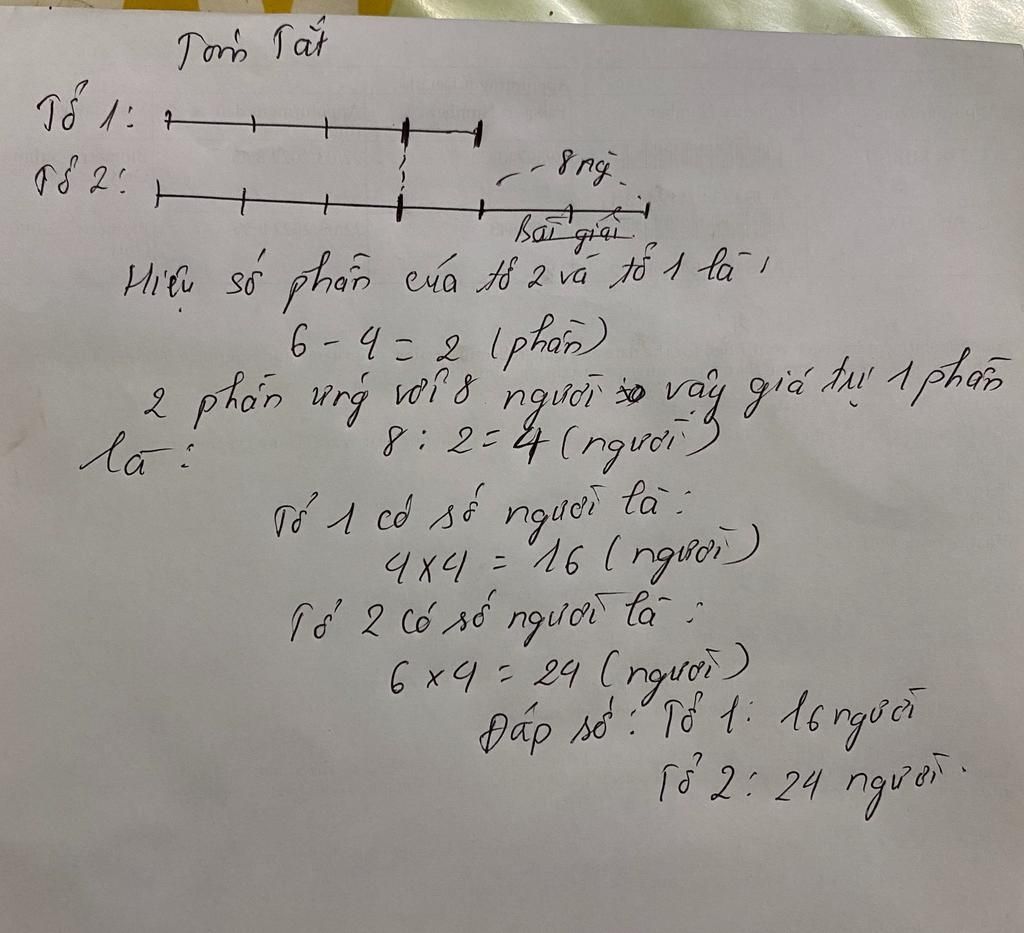 Tóm Tắt
Tổ 1:
Tổ 2:
8 ng
Bài giải
Hiệu số phần của tổ 2 và tổ 1 là:
6 - 4 = 2 (phần)
2 phần ứng với 8 người vậy giá trị 1 phần
là:
8 : 2 = 4 (người)
Tổ 1 có số người là:
4 x 4 = 16 (người)
Tổ 2 có số người là:
6 x 4 = 24 (người)
Đáp số: Tổ 1: 16 người
Tổ 2: 24 người.